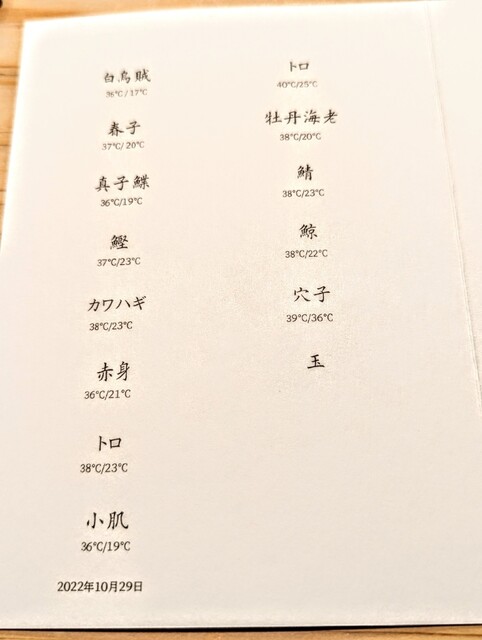 白烏賊
36℃/17℃
春子
37℃/20℃
真子鰈
36℃/19℃
鰹
37℃/23℃
カワハギ
38℃/23℃
赤身
36℃/21℃
トロ
38℃/23℃
小肌
36℃/19℃
2022年10月29日
トロ
40℃/25℃
牡丹海老
38℃/20℃
鯖
38℃/23℃
鯨
38℃/22℃
穴子
39℃/36℃
玉